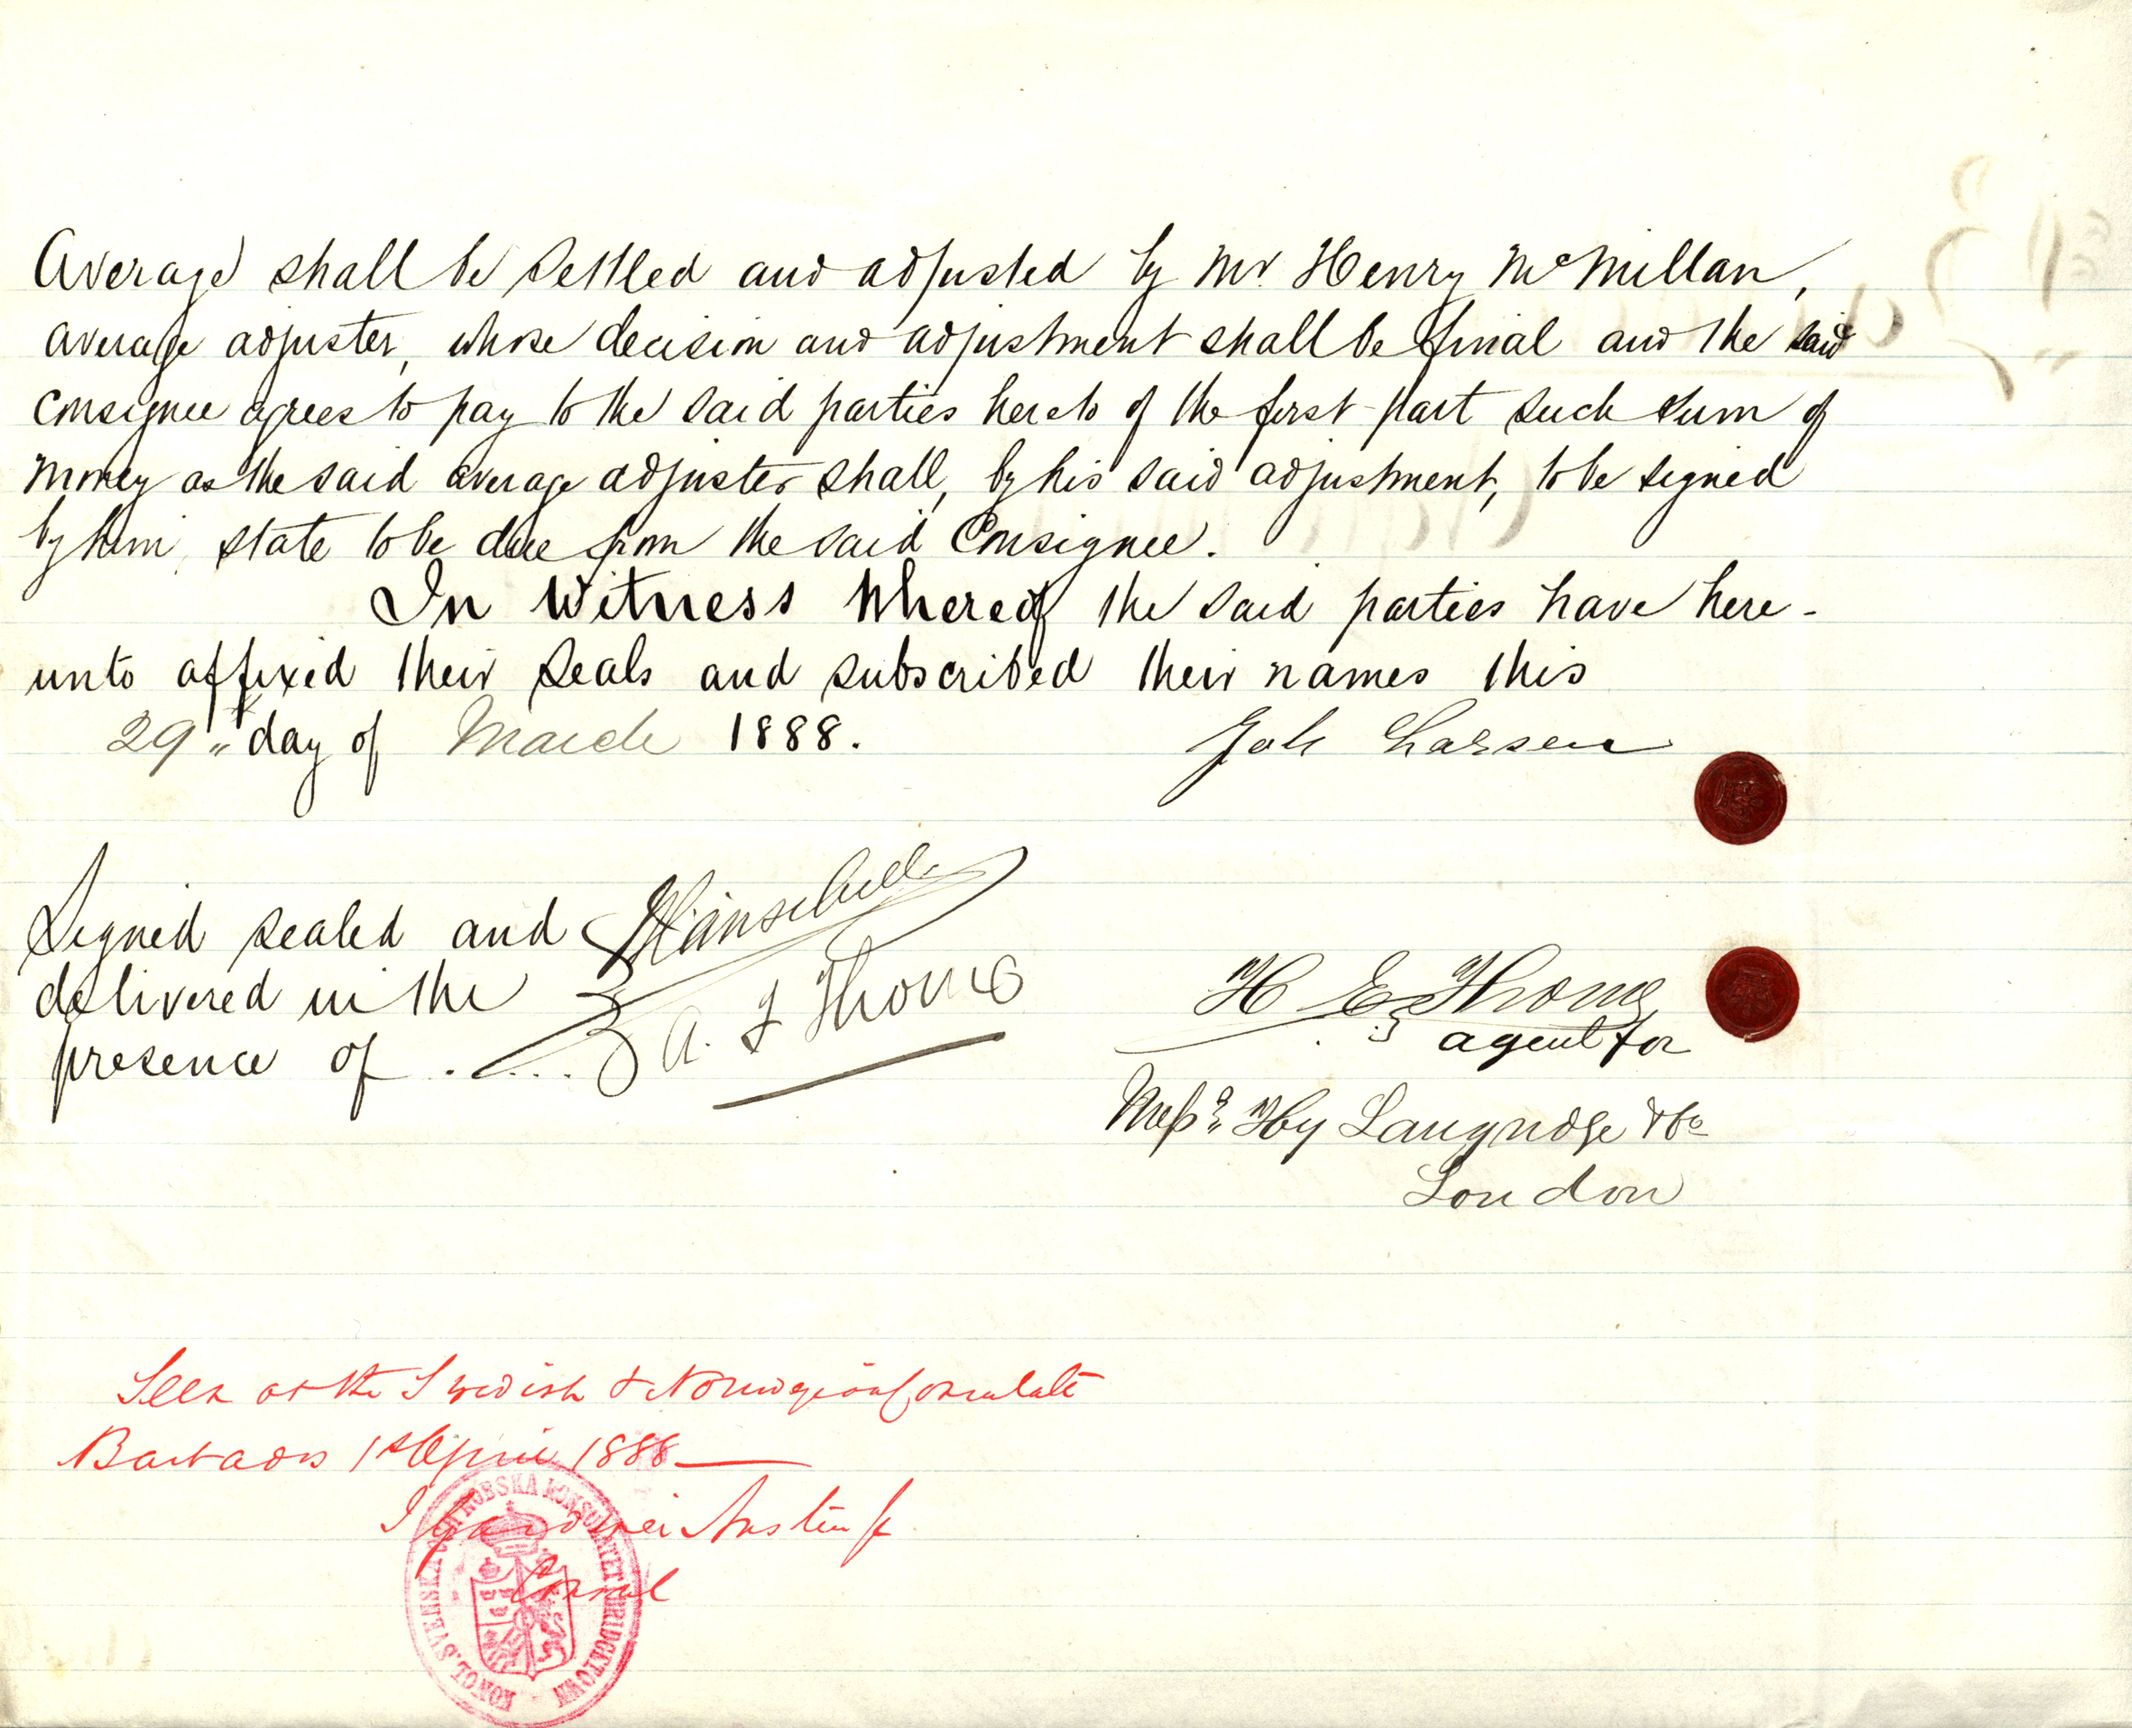 Average shall be settled and adjusted by Mr. Henry McMillan,
average adjuster, whose decision and adjustment shall be final and the said
consignee agrees to pay to the said parties hereto of the first part such sum of
money as the said average adjuster shall, by his said adjustment, to be signed
by him, state to be due from the said Consignee.
In Witness Whereof the said parties have here-
unto affixed their seals and subscribed their names this
29" day of March 1888.
Joh Larsen
Signed sealed and
delivered in the
presence of
A. F Thorne
H E Thorne
agent for
Mess.rs Hy Langridge & Co
London
Seen at the Swedish & Norwegian Consulate
Barbados 1st April 1888
Gardiner Austin Jr
Consul
KONGL. SVENSKA OCH NORSKA KONSULATET BRIDGETOWN